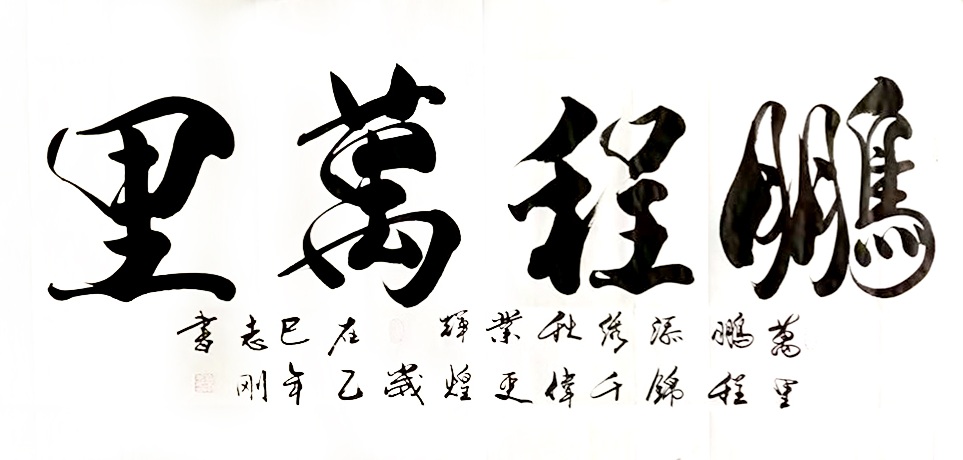 鵬程萬里
萬里
鵬程
添錦
綉千
秋偉
業更
輝煌
歲
在乙
巳年
志剛
書